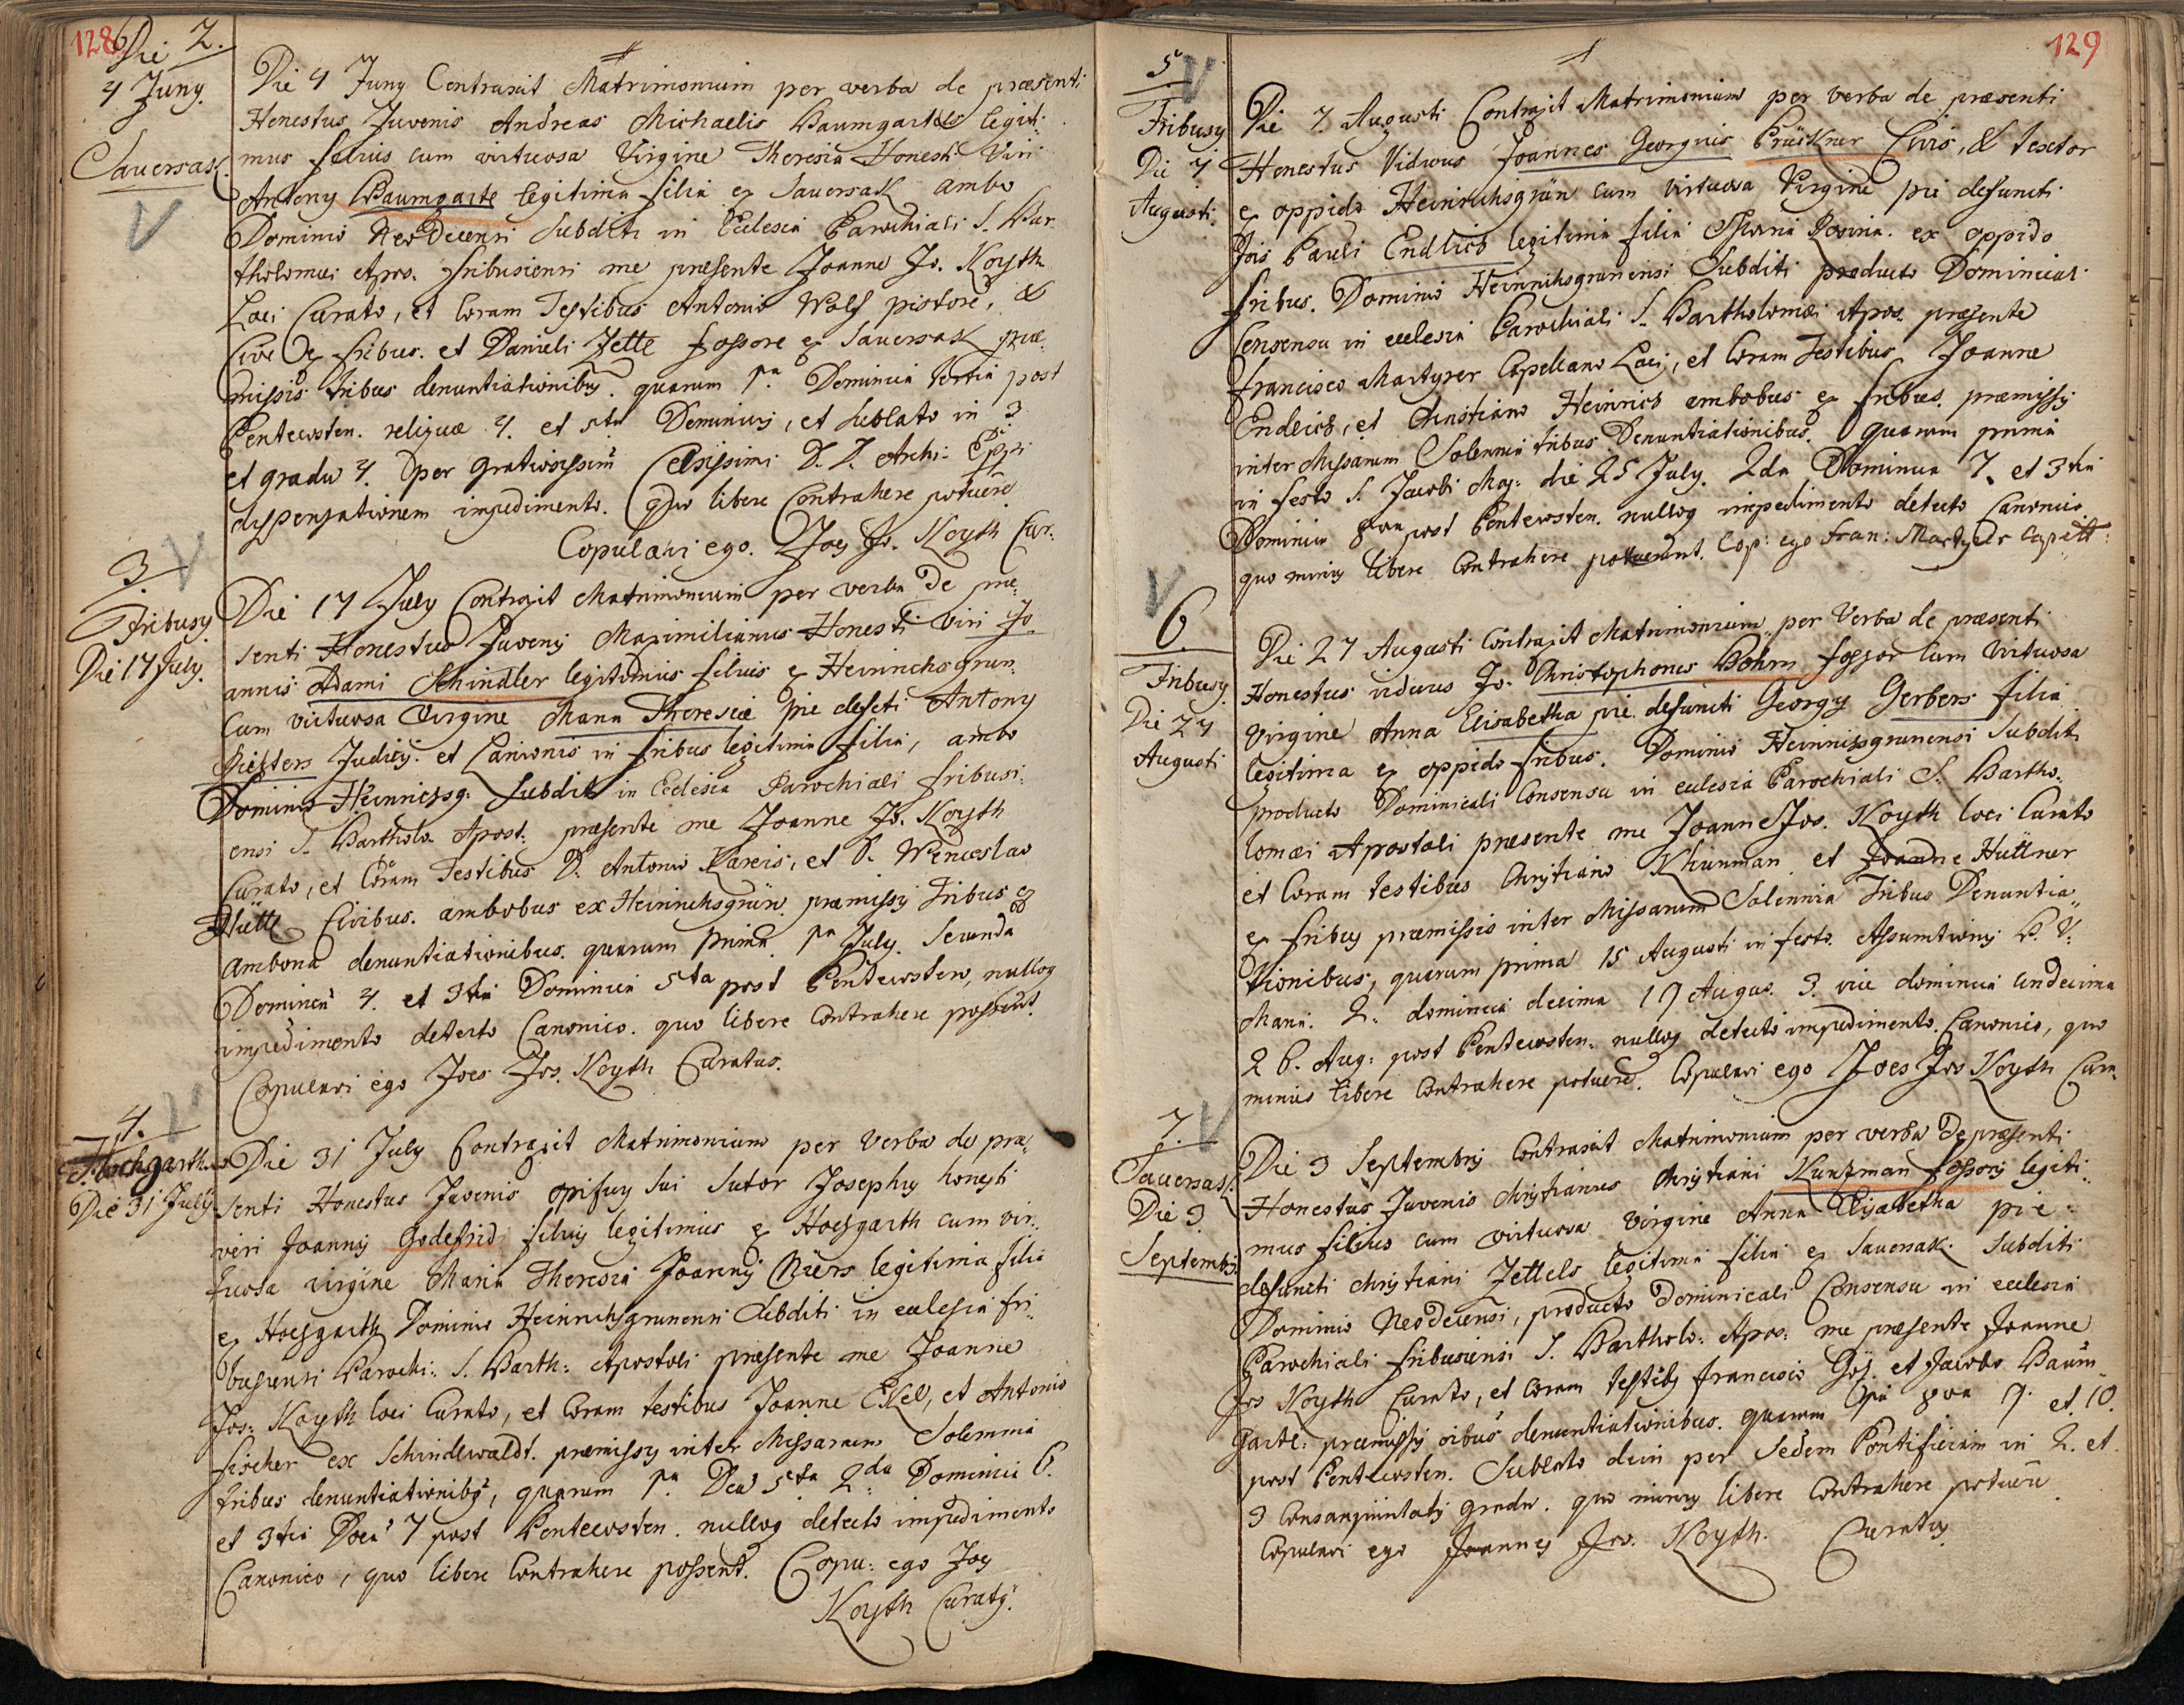 128
Die 2.
4 Juny.
Sauersak.
Die 4 Juny Contraxit Matrimonium per verba de præsenti
Honestus Juvenis Andreas Michaelis Baumgartls legiti-
mus filius cum virtuosa Virgine Theresia Honesti Viri
Antony Baumgartl legitima filia ex Sauersak ambo
Dominio Neodecensi subditi in Ecclesia Parochiali S. Bar-
tholomæi Apos. fribusiensi me præsente Joanne Jo. Koyth
Loci Curato, et Coram Testibus Antonio Wolf pistore, &
Cive ex fribus. et Danieli Zettl fossore ex Sauersak præ-
missis tribus denuntiationibus. quarum 1ma Dominica tertia post
Pentecosten. reliquæ 4. et 5ta Dominicis, et sublato in 3
et gradu 4. per gratiosissim Celsissimi D. D. Archi- Eppi
dispensationem impedimento. quo libere Contrahere potuere
Copulavi ego. Joes Jo. Koyth Cur:
3.
Fribusy
Die 17 July.
Die 17 July Contraxit Matrimonium per verba de præ-
senti Honestus Juvenis Maximilianus Honesti viri Jo-
annis Adami Schindler legitimus filius ex Heinrichsgrun
Cum virtuosa Virgine Mana Theresiæ pie defcti Antony
Richters Judicij. et Lanionis in fribus legitima filia, ambo
Dominio Heinrichsg: subditi in Ecclesia Parochiali fribusi-
ensi S. Bartholo. Apost. præsente me Joanne Jo. Koyth
Curato, et Coram Testibus D. Antonio Kareis, et D. Wenceslao
Hüttl Civibus. ambobus ex Heinrichsgrün. præmissy tribus ex
Ambona denuntiationibus. quarum prima 1ma July. Secunda
Dominica 4. et 3tia Dominica 5ta post Pentecosten, nulloq
impedimento detecto Canonico. quo libere Contrahere possent.
Copulavi ego Joes Jos. Koyth Curatus.
4.
Hochgarth
Die 31 July
Die 31 July Contraxit Matrimonium per Verba de præ-
senti Honestus Juvenis opifex sui sutor Josephus honesti
viri Joannis Godefridi filius legitimus ex Hochgarth cum vir-
tuosa virgine Maria Theresia Joannis Miers legitima filia
ex Hochgarth Dominio Heinrichsgrunensi subditi in ecclesia fri-
busiensi Parochi: S. Barth: Apostoli præsente me Joanne
Jos: Koyth loci Curato, et Coram testibus Joanne Ekel, et Antonio
fischer ex Schindlwaldt. præmissy inter Missarum Solemnia
tribus denuntiationibus, quarum 1ma Dca 5ta 2da Dominica 6.
et 3tia Doca 7 post Pentecosten. nulloq detecto impedimento
Canonico, quo libere Contrahere possent. Copu: ego Joes
Koyth Curatus.
129
5
Fribusy
Die 7
Augusti.
Die 7. Augusti Contraxit Matrimonium per verba de præsenti
Honestus Viduus Joannes Georgius Prückner Civis, & textor
ex oppido Heinrichsgrün cum virtuosa Virgine pie defuncti
Jois Pauli Endlich legitima filia Maria Rosina. ex oppido
fribus. Dominio Heinrichsgrunensi Subditi producto Dominicali
Consensu in ecclesia Parochiali S. Bartholomæi Apos. præsente
francisco Martyrer Capellano Loci, et Coram Testibus Joanne
Endlich, et Christiano Heinrich ambobus ex fribus. præmissy
inter Missarum Solennia tribus Denuntiationibus. Quarum prima
in festo S. Jacobi Maj: die 25 July. 2da Dominica 7. et 3tia
Dominica 8va post Pentecosten. nulloq impedimento detecto Canonico.
quo minus libere Contrahere potuerunt. Cop: ego Fran: Martyrer Capell:
6.
Fribusy
Die 27
Augusti
Die 27 Augusti Contraxit Matrimonium per Verba de præsenti
Honestus viduus Jo. Christophorus Bohm fossor Cum Virtuosa
Virgine Anna Elisabetha pie defuncti Georgy Gerbers filia
legitima ex oppido fribus. Dominio Heinrichsgrunensi Subditi
producto Dominicali Consensu in ecclesia Parochiali S. Bartho-
lomæi Apostoli præsente me Joanne Jos. Koyth loci Curato
et Coram testibus Christiano Khünman et Joanne Hüttner
ex fribus præmissis inter Missarum Solennia Tribus Denuntia-
tionibus, quarum prima 15 Augusti in festo. Assumtionis B. V:
Maria. 2. dominica decima 19 Augus. 3. vice dominica undecima
26. Aug: post Pentecosten. nulloq detecto impedimento Canonico, quo
minus libere Contrahere potuere. Copulavi ego Joes Jos Koyth Cura-
7.
Sauersak.
Die 3
Septembris
Die 3 Septembris Contraxit Matrimonium per verba de præsenti
Honestus Juvenis Christianus Christiani Kunzman fossoris legiti-
mus filius cum virtuosa virgine Anna Elisabetha pie
defuncti Christiani Zettels legitima filia ex Sauersak. subditi
Dominio Neodecensi, producto Dominicali Consensu in ecclesia
Parochiali fribusiensi S. Bartholo: Apos: me præsente Joanne
Jos Koyth Curato, et Coram testibus francisco Göß. et Jacobo Baum-
gartl: præmissis tribus denuntiationibus. quarum 1ma 8va 9. et 10.
post Pentecosten. Sublato dein per Sedem Pontificiam in 2. et
3 Consanguinitatis gradu. quo minus libere Contrahere potuere
Copulavi ego Joannes Jos. Koyth. Curatus